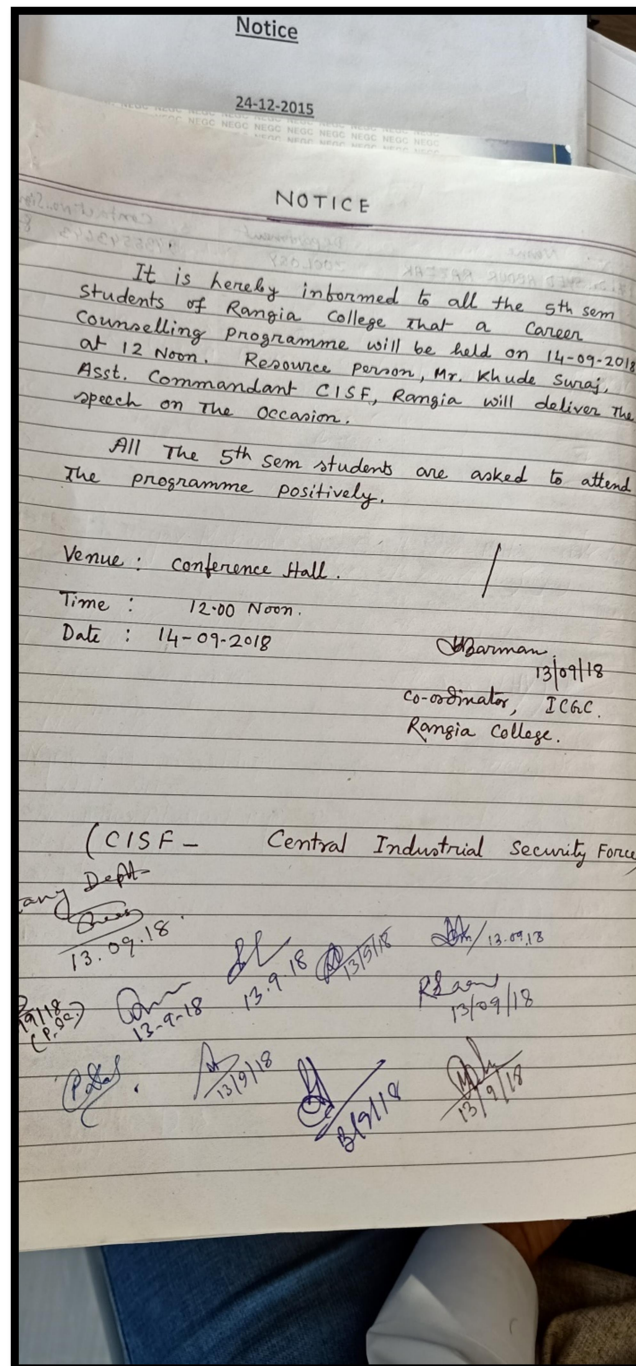 Notice
24-12-2015
NEGC NEGC NEGC NEGC NEGC NEGC NEGC
NOTICE
It is hereby informed to all the 5th sem
students of Rangia College that a Career
Counselling Programme will be held on 14-09-2018
at 12 Noon. Resource person, Mr. Khude Suraj,
Asst. Commandant CISF, Rangia will deliver the
speech on the Occasion.
All the 5th sem students are asked to attend
the programme positively.
Venue : Conference Hall.
Time : 12.00 Noon.
Date : 14-09-2018
Barman
13/09/18
Co-ordinator, ICGC.
Rangia College.
(CISF - Central Industrial Security Force)
Dept-
13.09.18.
13.9.18 13/9/18 13.09.18
(P.Sc.) 13-9-18 13/09/18
13/9/18 13/9/18 13/9/18